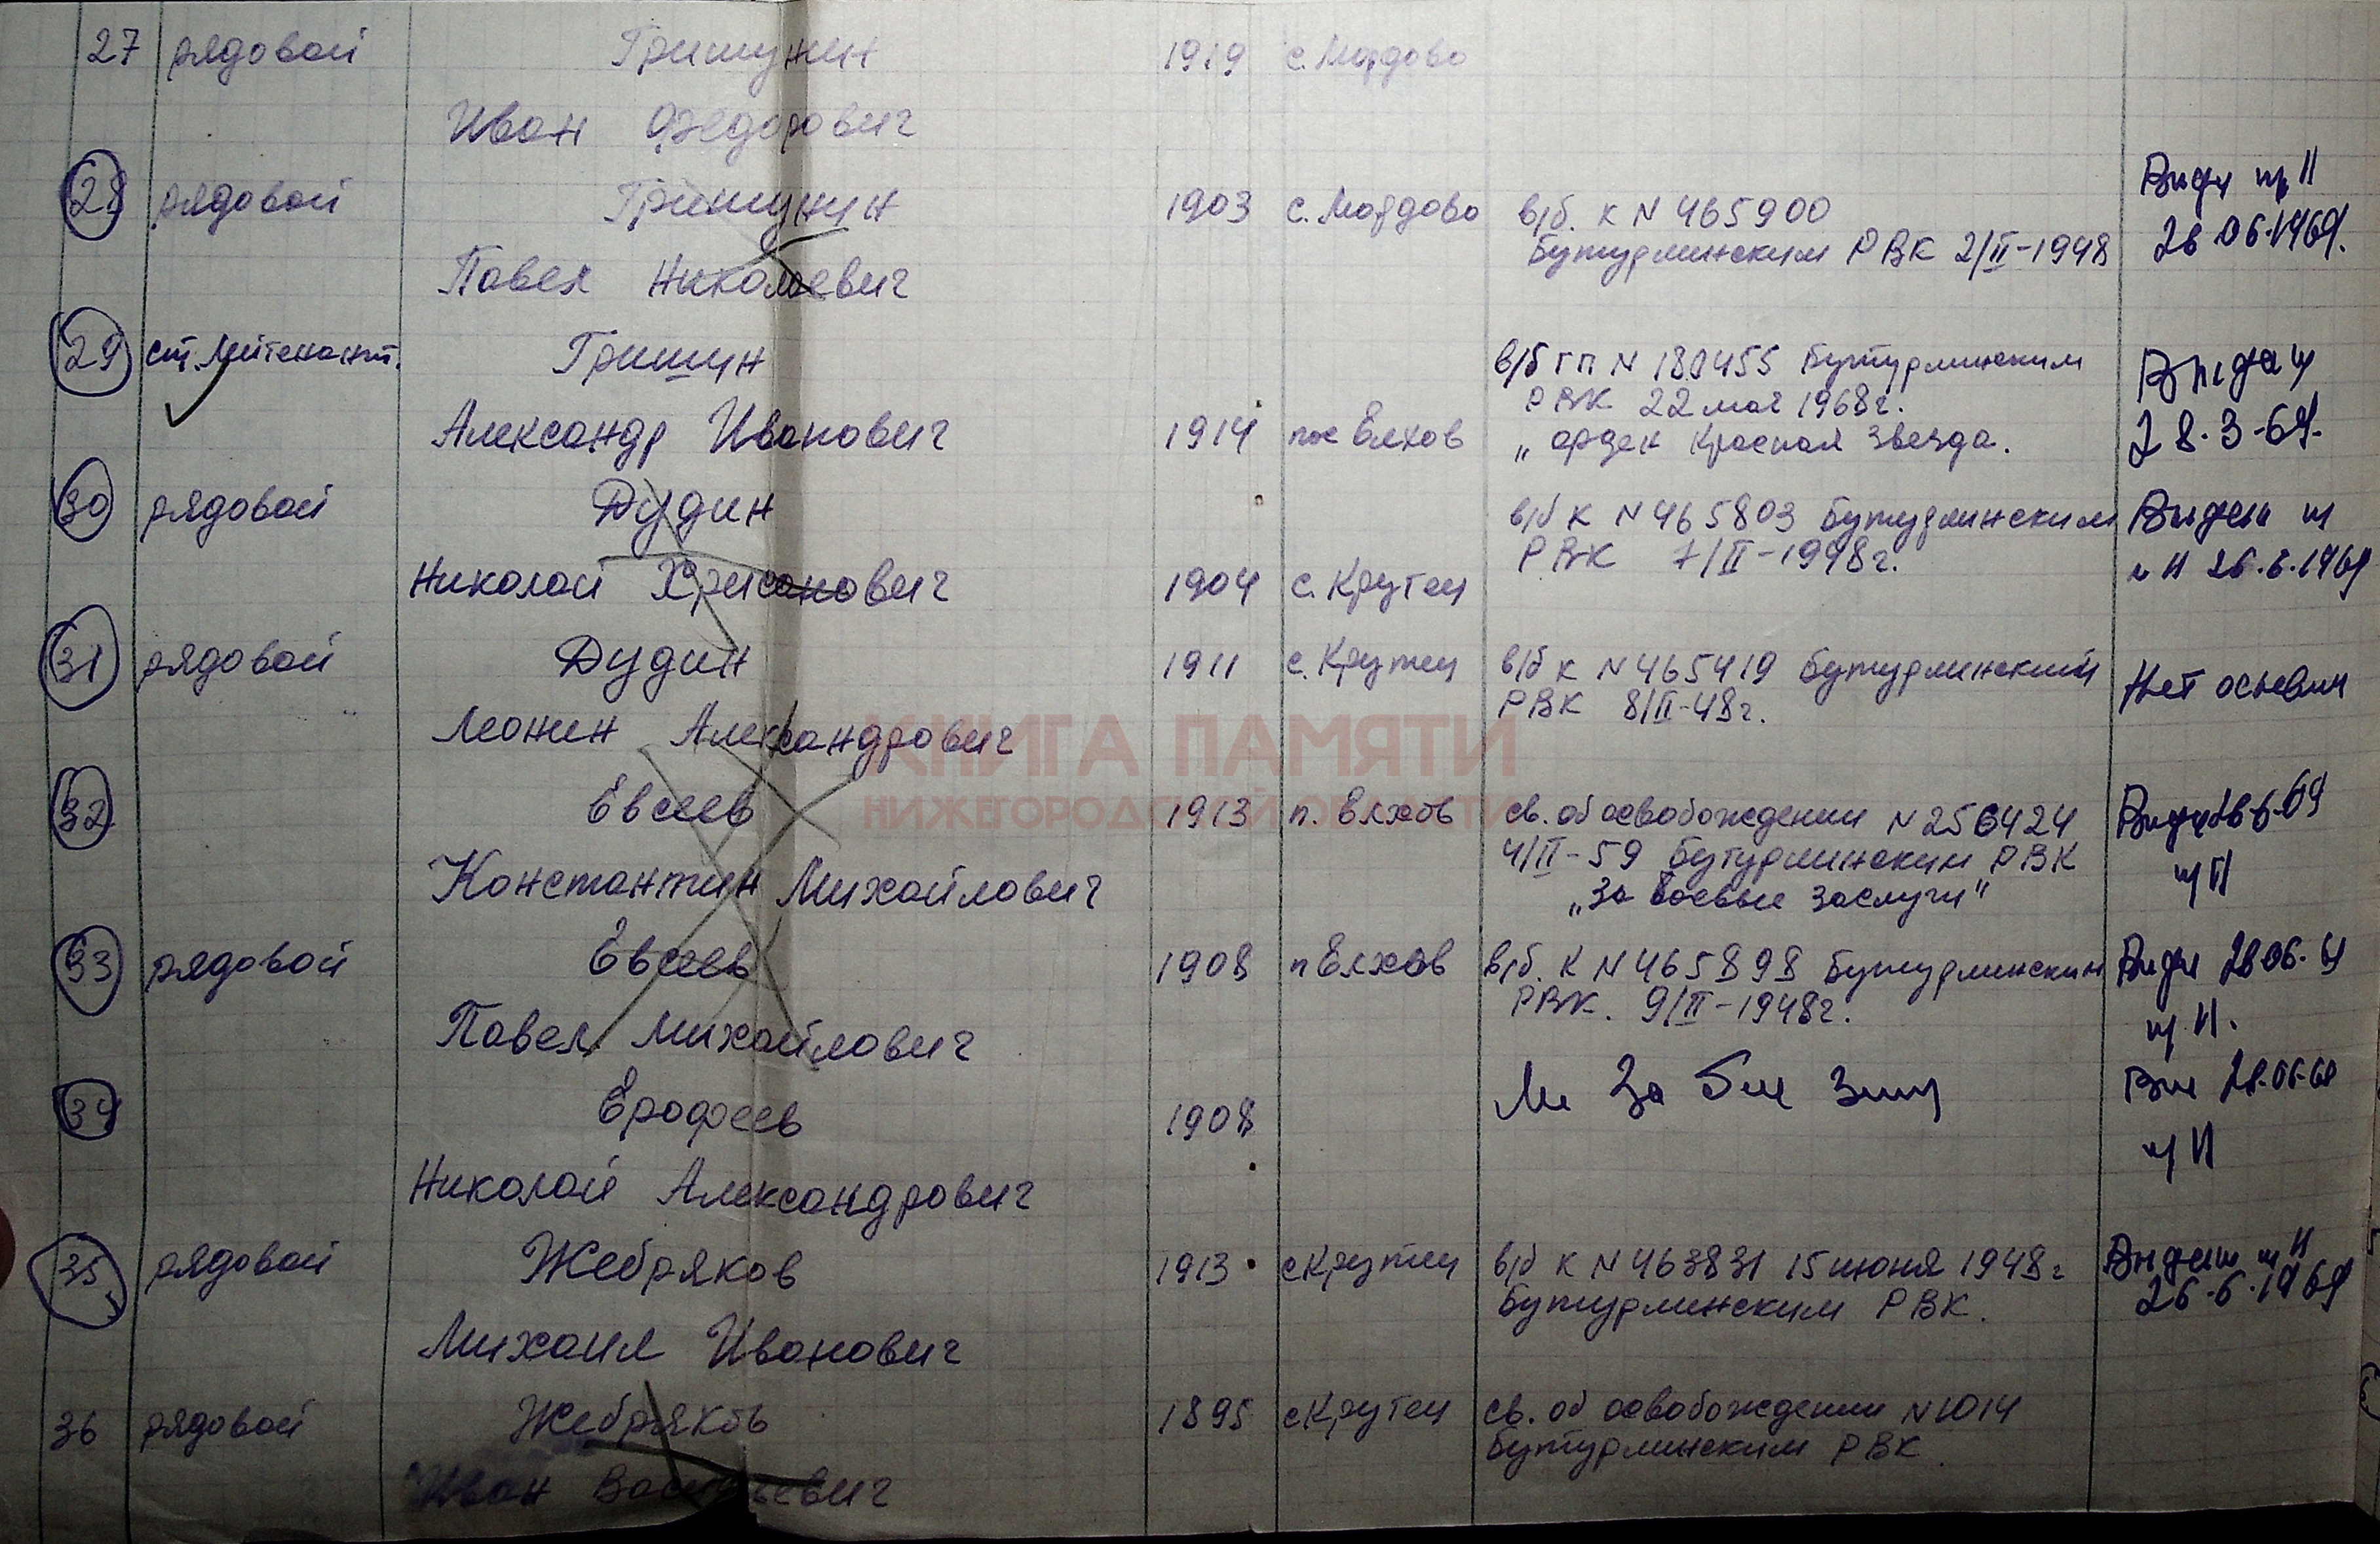 27 рядовой Гришунин 1919 с. Мордово
Иван Федорович
28 рядовой Гришунин 1903 с. Мордово в/б. к N 465900
Бутурлинским РВК 2/II-1948
26.06.1969.
Павел Николаевич
29 ст. лейтенант. Гришин в/б гп N 180455 Бутурлинским
РВК 22 мая 1968г.
Александр Иванович 1914 пос Елхов „ орден Красная Звезда.
28.3-69.
30 рядовой Дудин в/б к N 465803 Бутурлинским
РВК 7/II-1948г.
Николай Хрисанович 1904 с. Крутец
26.6.1969
31 рядовой Дудин 1911 с. Крутец в/б к N 465419 Бутурлинский
РВК 8/II-48г.
Нет
Леонид Александрович
КНИГА ПАМЯТИ
НИЖЕГОРОДСКОЙ ОБЛАСТИ
32 Евсеев 1913 п. Елхов св. об освобождении N 256424
4/II-59 Бутурлинским РВК
Константин Михайлович „За боевые заслуги"
33 рядовой Евсеев 1908 п Елхов в/б. к N 465898 Бутурлинским
РВК. 9/II-1948г.
Павел Михайлович
34 Ерофеев 1908
Николай Александрович
35 рядовой Жебряков 1913 с Крутец в/б к N 463831 15 июня 1948г
Бутурлинским РВК.
26.6.1969
Михаил Иванович
36 рядовой Жебряков 1895 с Крутец св. об освобождении N 1014
Бутурлинским РВК
Иван Васильевич